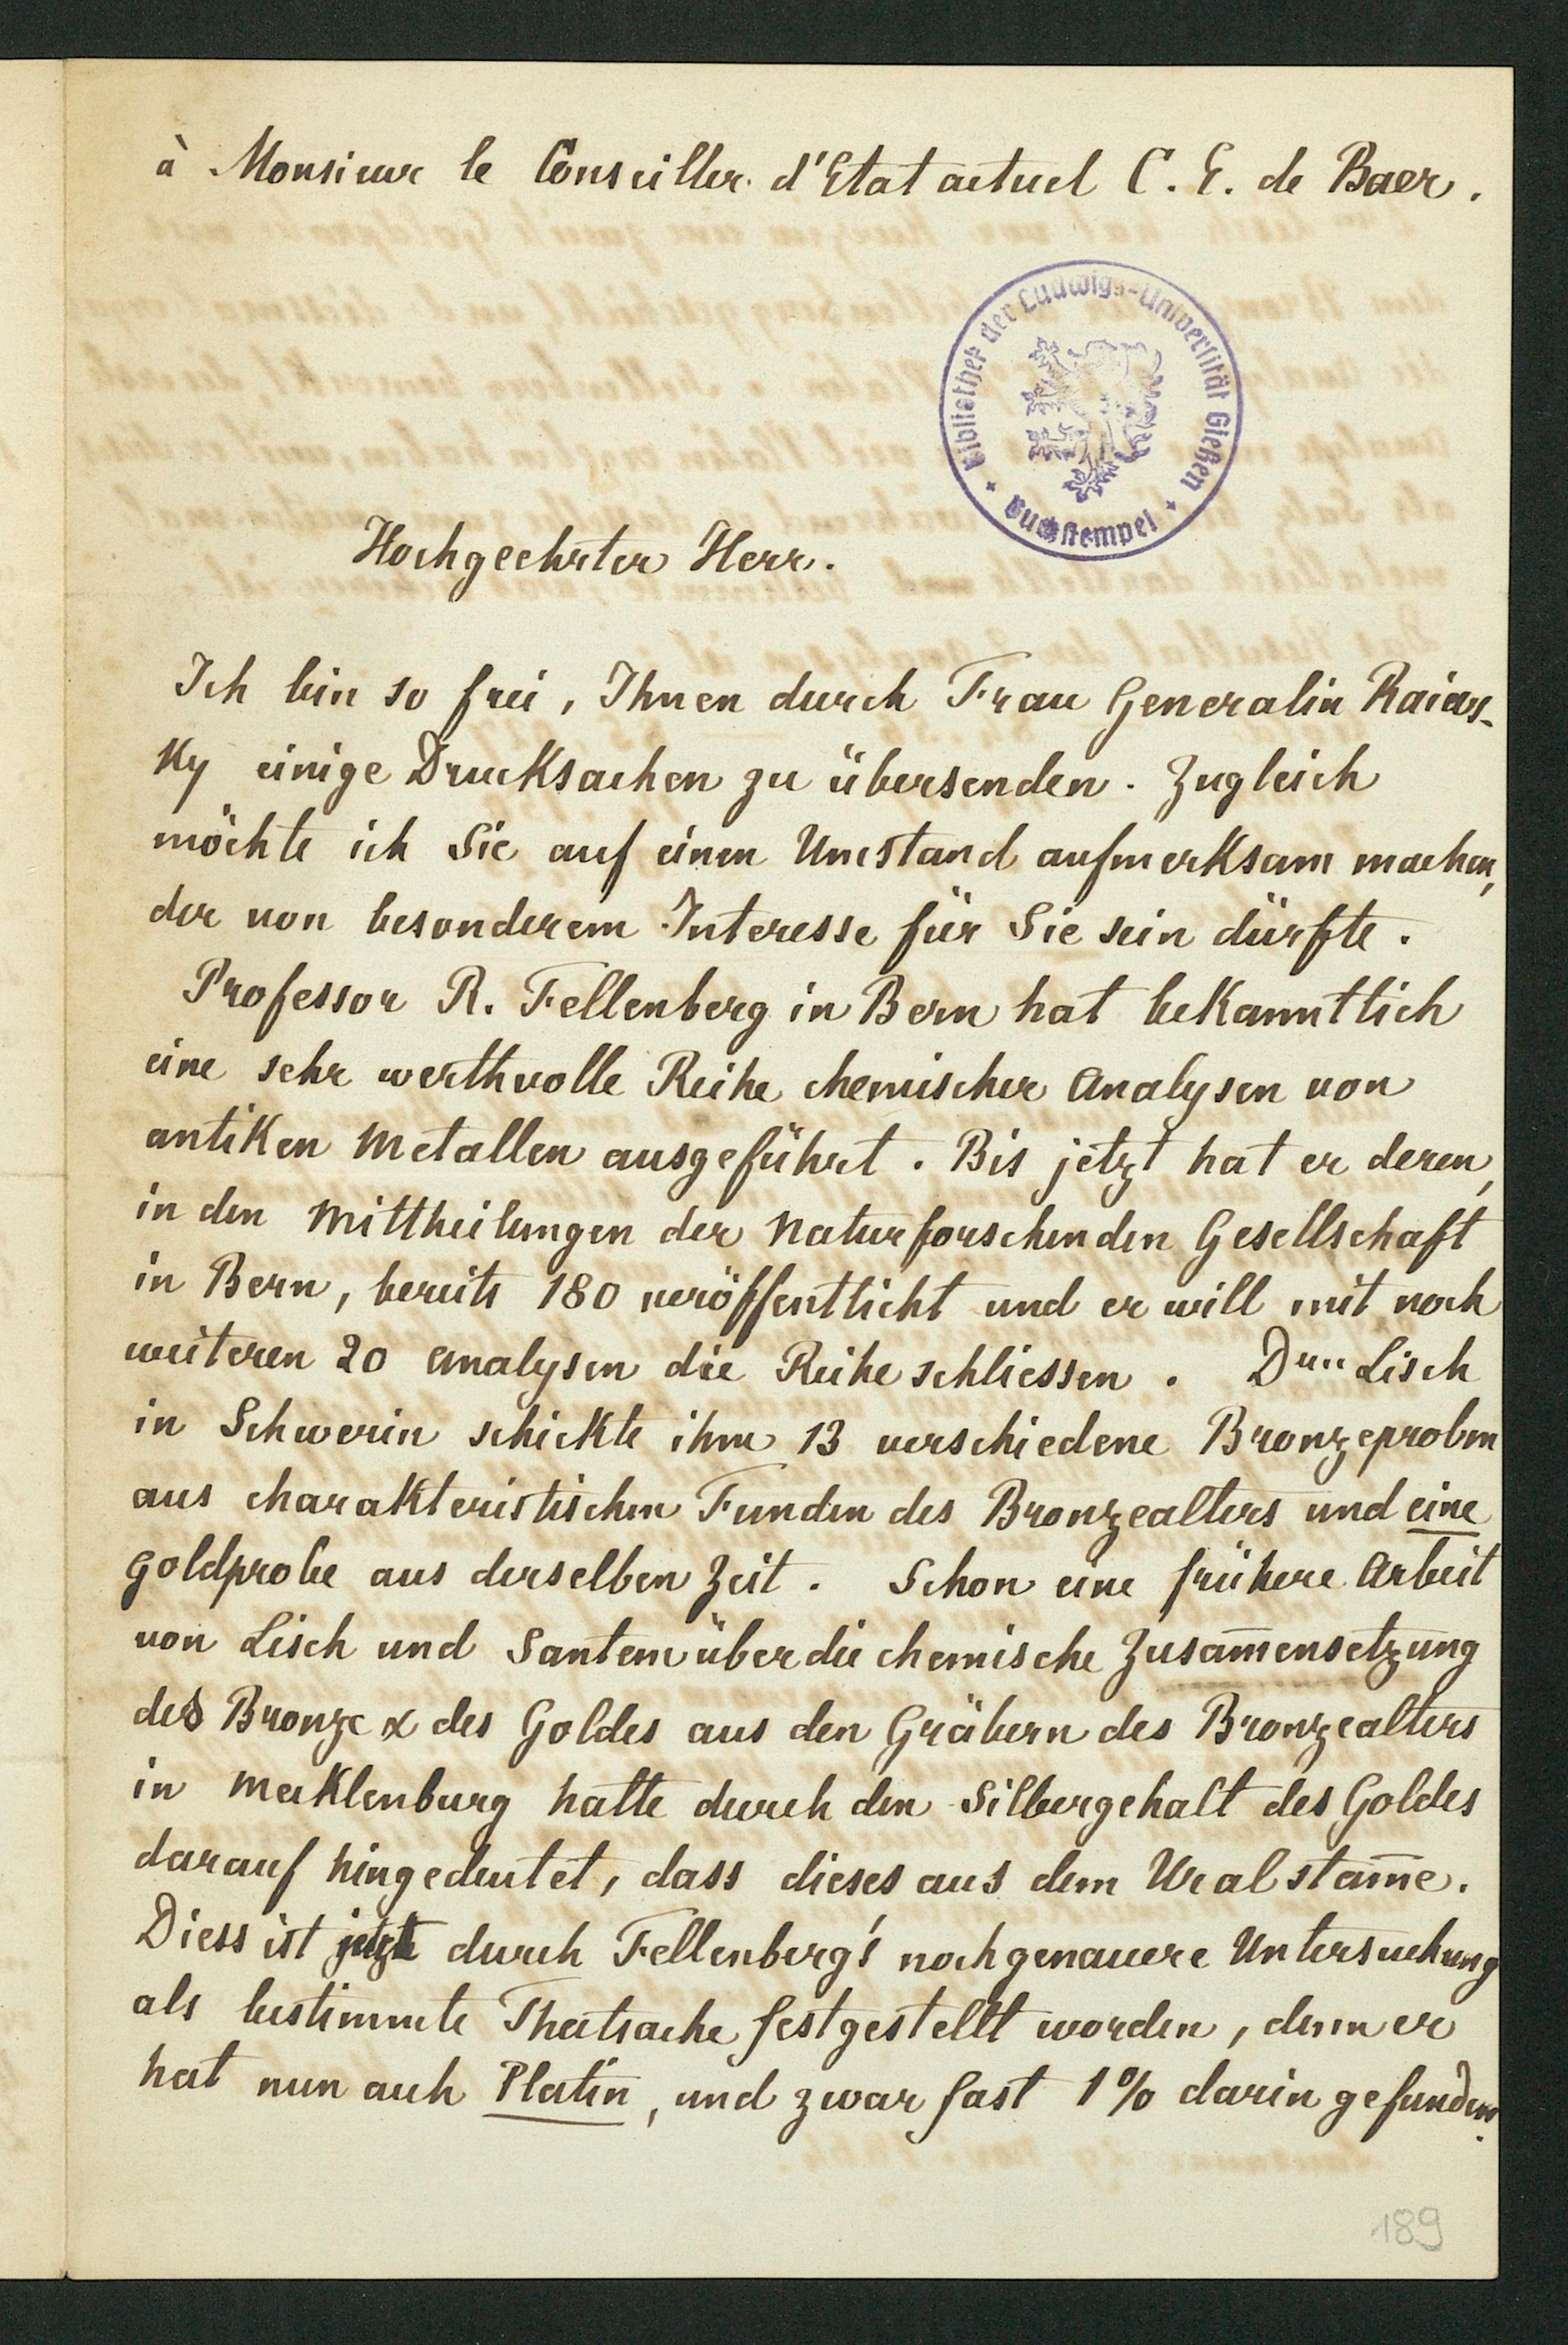 à Monsieur le Conseiller d'Etat actuel C. E. de Baer.
Bibliothek der Ludwigs-Universität Gießen
Buchstempel
Hochgeehrter Herr.
Ich bin so frei, Ihnen durch Frau Generalin
ky einige Drucksachen zu übersenden. Zugleich
möchte ich Sie auf einen Umstand aufmerksam machen,
der von besonderem Interesse für Sie sein dürfte.
Professor R. Fellenberg in Bern hat bekanntlich
eine sehr werthvolle Reihe chemischer Analysen von
antiken Metallen ausgeführt. Bis jetzt hat er deren,
in den Mittheilungen der Naturforschenden Gesellschaft
in Bern, bereits 180 veröffentlicht und er will mit noch
weiteren 20 Analysen die Reihe schliessen. Lisch
in Schwerin schickte ihm 13 verschiedene Bronzeproben
aus charakteristischen Funden des Bronzealters und eine
Goldprobe aus derselben Zeit. Schon eine frühere Arbeit
von Lisch und Santem über die chemische Zusam̅ensetzung
des Bronze & des Goldes aus den Gräbern des Bronzealters
in Mecklenburg hatte durch den Silbergehalt des Goldes
darauf hingedeutet, dass dieses aus dem Ural stam̅e.
Diess ist jetzt durch Fellenberg's noch genauere Untersuchung
als bestimmte Thatsache festgestellt worden, denn er
hat nun auch Platin, und zwar fast 1% darin gefunden.
189